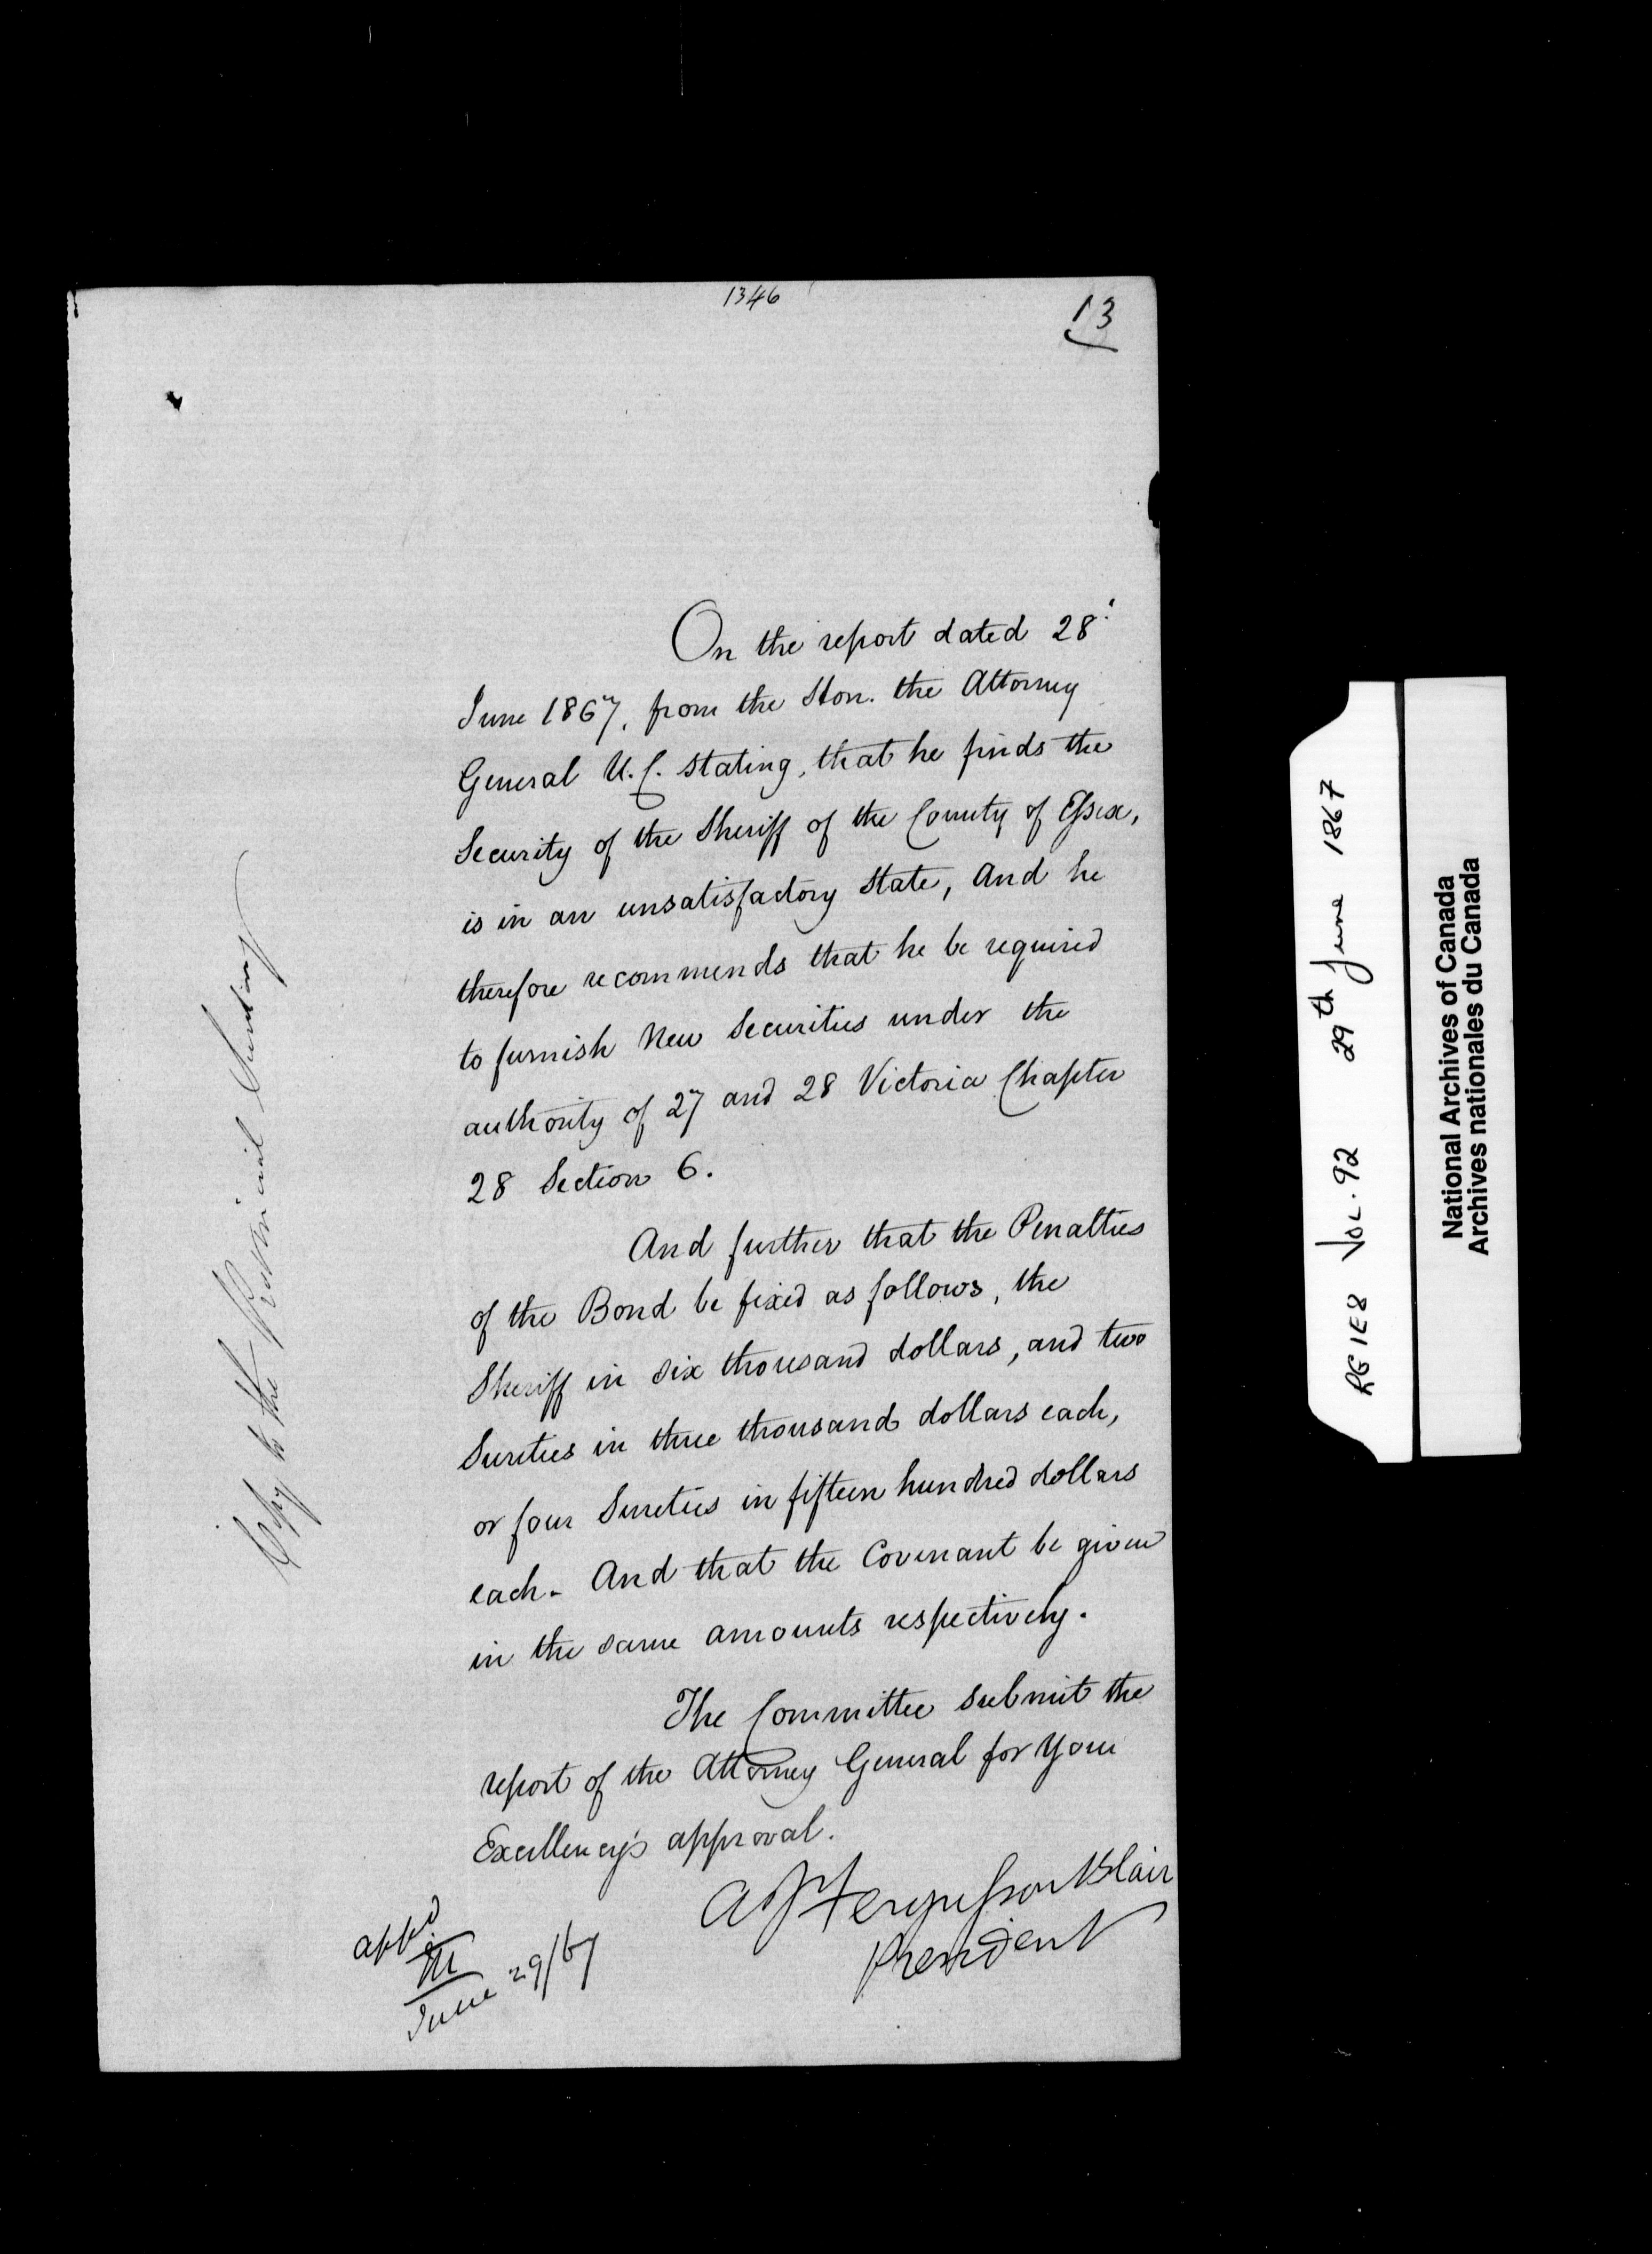 1346
13
On the report dated 28:
June 1867, from the Hon. the Attorney
General U.C. stating, that he finds the
Security of the Sheriff of the County of Essex,
is in an unsatisfactory state, And he
therefore recommends that he be required
to furnish New Securities under the
authority of 27 and 28 Victoria Chapter
28 Section 6.
And further that the Penalties
of the Bond be fixed as follows, the
Sheriff in six thousand dollars, and two
Sureties in three thousand dollars each,
or four Sureties in fifteen hundred dollars
each. And that the Covenant be given
in the same amounts respectively.
The Committee submit the
report of the Attorney General for Your
Excellency's approval.
A J Fergusson Blair
President
appd
M
June 29/67
Copy to the Provincial Secretary
RG 1E8 VOL. 92 29th June 1867
National Archives of Canada
Archives nationales du Canada